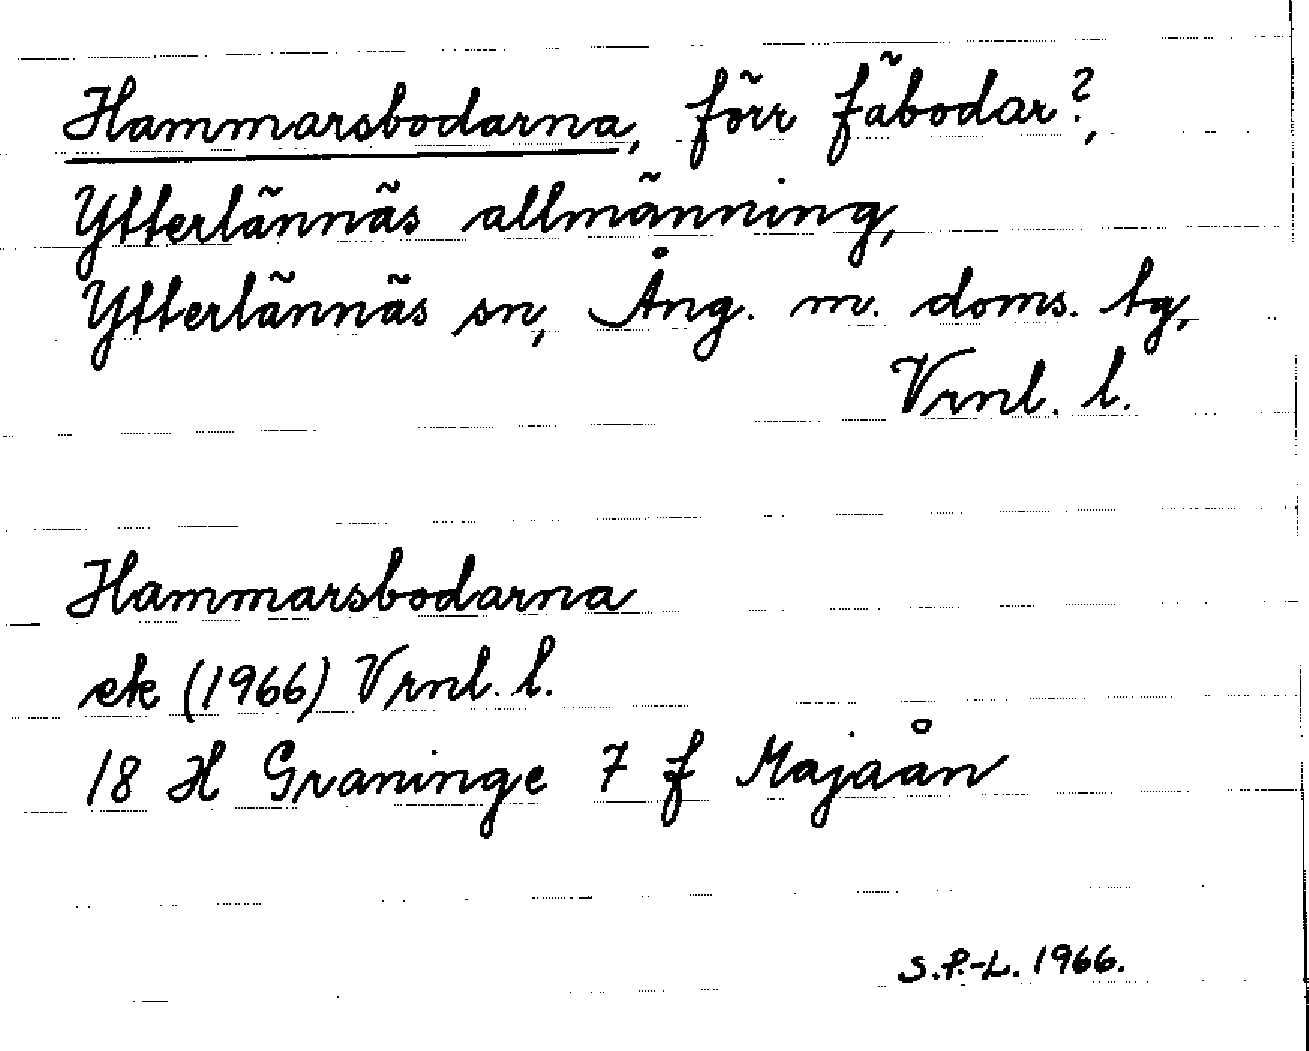 Hammarsbodarna, förr fäbodar?,
Ytterlännäs allmänning,
Ytterlännäs sn, Ång. m. doms. tg,
Vrnl. l.
Hammarsbodarna
ek (1966) Vrnl. l.
18 H Graninge 7 f Majaån
S.P.-L. 1966.